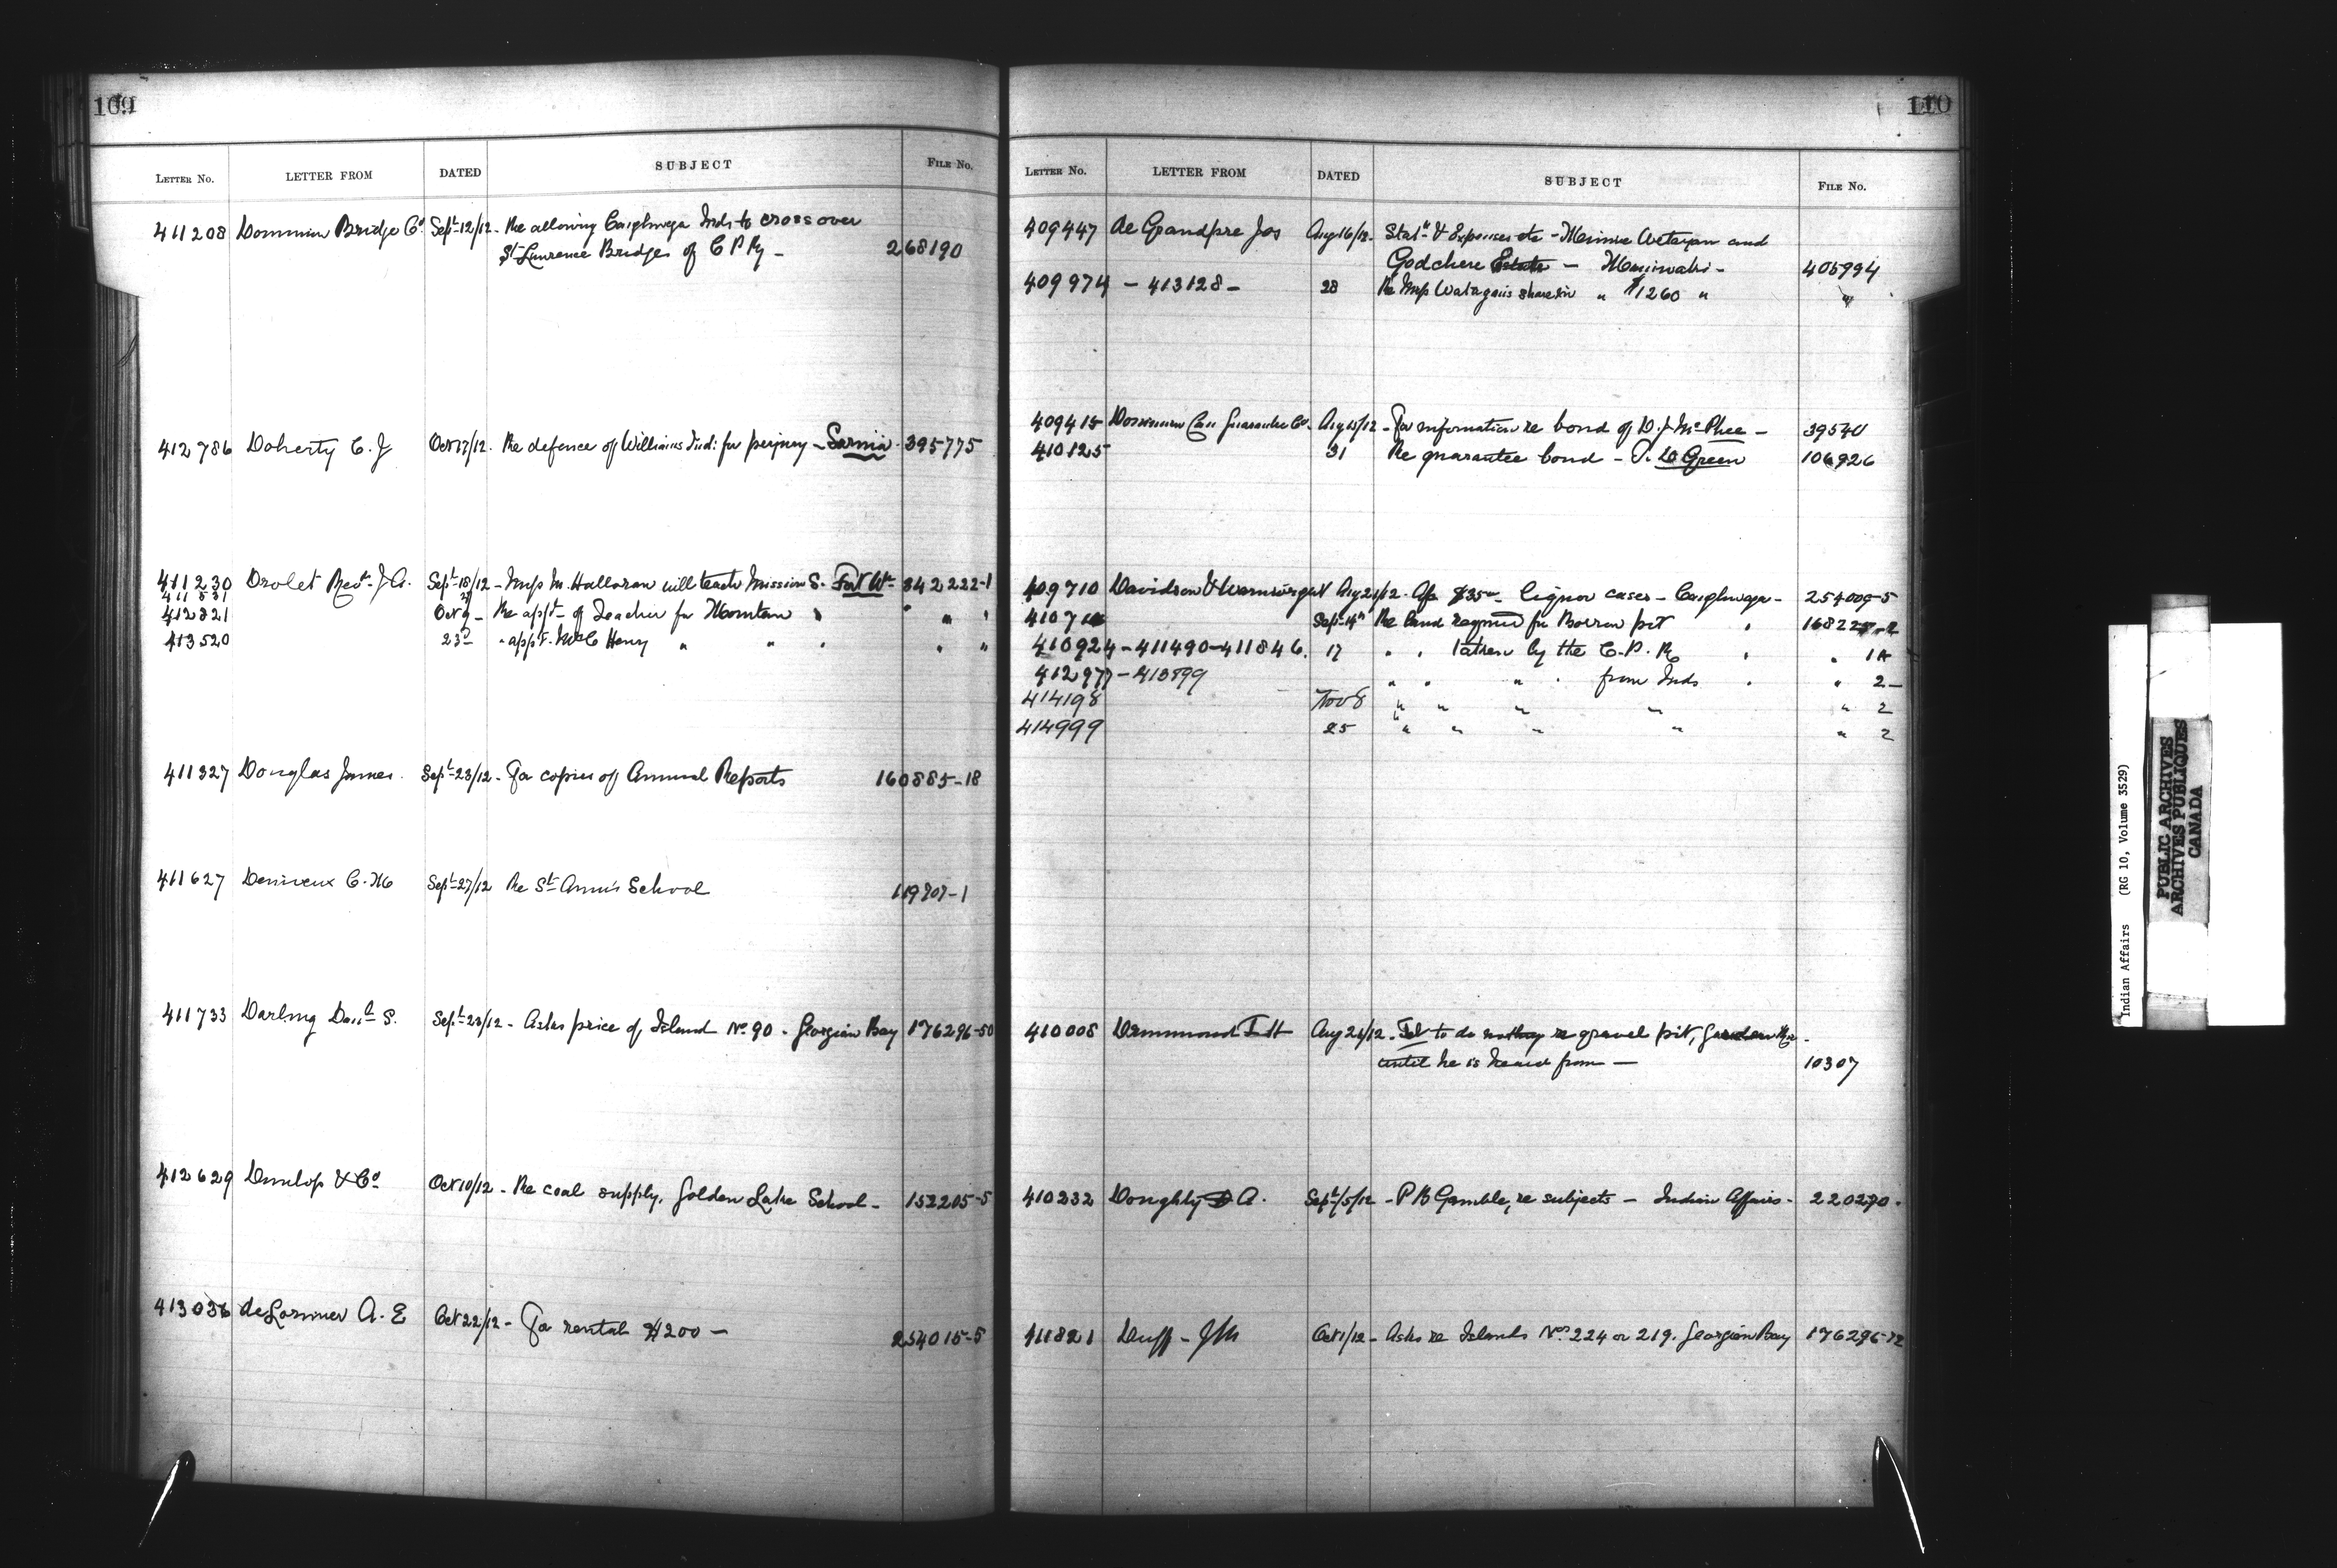 109
LETTER NO. LETTER FROM DATED SUBJECT FILE No.
411208 Dominion Bridge Co. Sept 12/12 - Re allowing Caughnwega Inds to cross over
St Lawrence Bridges of C P Ry - 268190
412786 Doherty C. J Oct 17/12. Re defence of Williams Ind: for perjury - Sarnia. 395775
411230 Drolet Revd. J. A. Sept 18/12 - Miss M. Halloran will teach Mission S. Fort Wm 342222-1
411831 27
412321 Oct 9 - Re appt of Teacher for Mountain " " " "
413520 23d " appt. McC Henry " " " " "
411327 Douglas James. Sept 23/12 - For copies of Annual Reports 160885-18
411627 C. Sept 27/12 Re St Ann's School 119707-1
411733 Darling S. Sept 28/12 - Asks price of Island No. 90 - Georgian Bay 176296-50
412629 Dunlop & Co. Oct 10/12 - Re coal supply, Golden Lake School - 152205-5
413036 deLorimier A. E Oct 22/12 - For rental $200 - 254015-5
110
LETTER NO. LETTER FROM DATED SUBJECT FILE No.
409447 de Grandpre Jos Aug 16/12. Stat. & Expenses etc - Minnie and
Godchere Estate - Maniwaki - 405994
409974 - 413128 - 28 Re Miss share in " $1260 " "
409415 Dominion Guarantee Co. Aug 15/12 - For information re bond of D. J. McPhee - 39540
410125 31 Re guarantee bond - T. D Green 106926
409710 Davidson & Wainwright Aug 21/12. $35 liquor cases - Caughnwga - 254009-5
Sept 14th Re land required for Borrow pit "
410924 - 411490 - 411846. 17 " " taken by the C. P. R " " 1A
412977 - 413899 " " " " from Inds " " 2 -
414198 Nov 8 " " " " " 2
414999 25 " " " " " 2
410008 Drummond Aug 26/12. Tel to do nothing re gravel pit, Garden Riv.
until he is heard from - 10307
410232 Doughty A. Sept 5/12 - P B Gamble, re subjects - Indian Affairs - 220270.
411821 Duff - J M Oct 1/12 - Asks re Islands Nos. 224 or 219. Georgian Bay 176296-12
Indian Affairs (RG 10, Volume 3529)
PUBLIC ARCHIVES
ARCHIVES PUBLIQUES
CANADA